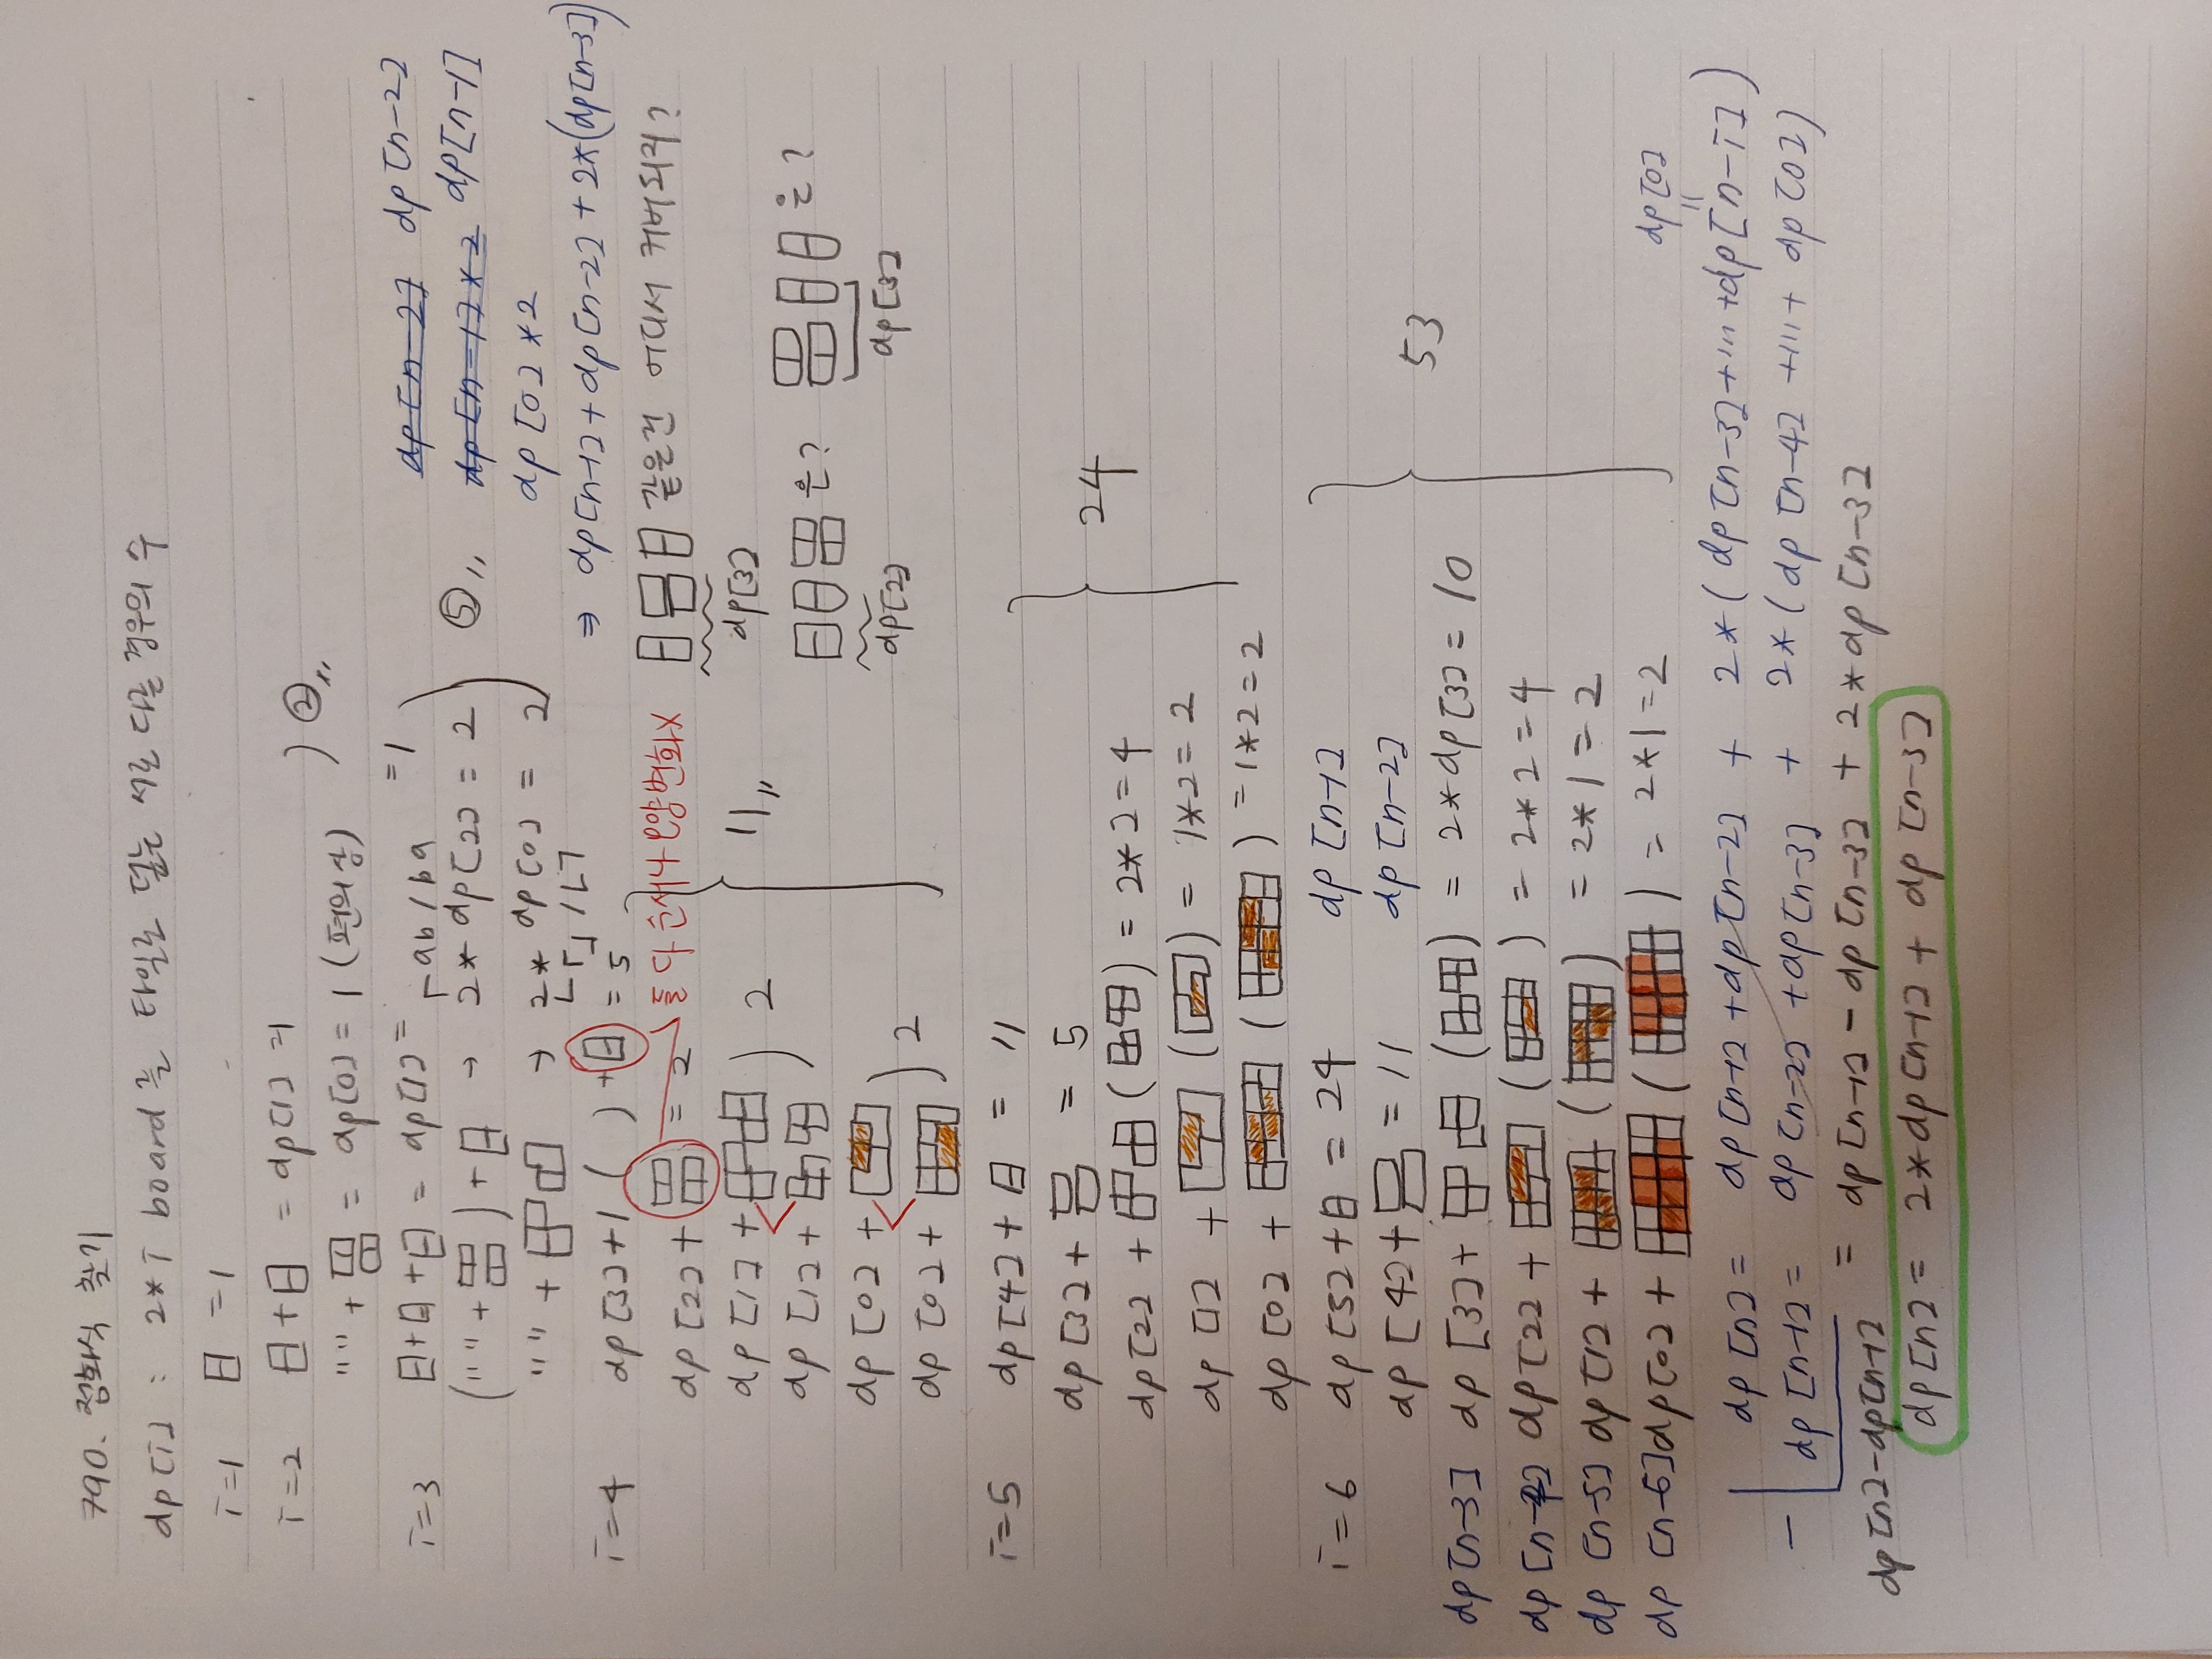 790. 점화식 찾기
dp[i] : 2*i board를 타일로 덮는 서로 다른 경우의 수
i=1 =1
i=2 + = dp[1] =1
"" + = dp[0] = 1 (편의상) ) ②,,
i=3 + + = dp[1] = =1
ab / ba
("" + ) + → 2* dp[2] = 2 ⑤,,
"" + → 2* dp[0] = 2
dp[n-2] dp[n-2]
dp[n-1]*2 dp[n-1]
dp[0]*2
⇒ dp[n-1]+dp[n-2]+2*(dp[n-3])
i=4 dp[3]+1 ( ) + = 5
dp[2] + = 2 둘 다 순서나 모양변화x
dp[1] +
dp[1] + ) 2
dp[0] +
dp[0] + ) 2
11,,
같은건 어디서 커버되지?
dp[3]
은? 은?
dp[2] dp[3]
i=5 dp[4] + = 11
dp[3] + = 5
dp[2] + ( ) = 2*2=4
dp[1] + ( ) = 1*2=2
dp[0] + ( ) = 1*2=2
24
i=6 dp[5]+ = 24 dp[n-1]
dp[4]+ = 11 dp[n-2]
dp[n-3] dp[3]+ ( ) = 2*dp[3] = 10
dp[n-4] dp[2] + ( ) = 2*2=4
dp[n-5] dp[1] + ( ) = 2*1=2
dp[n-6] dp[0] + ( ) = 2*1=2
53
dp[0]
dp[n] = dp[n-1]+dp[n-2] + 2*(dp[n-3]+...+dp[n-i])
- dp[n-1] = dp[n-2]+dp[n-3] + 2*(dp[n-4]+...+dp[0])
dp[n]-dp[n-1] = dp[n-1]-dp[n-3] + 2*dp[n-3]
dp[n] = 2*dp[n-1] + dp[n-3]